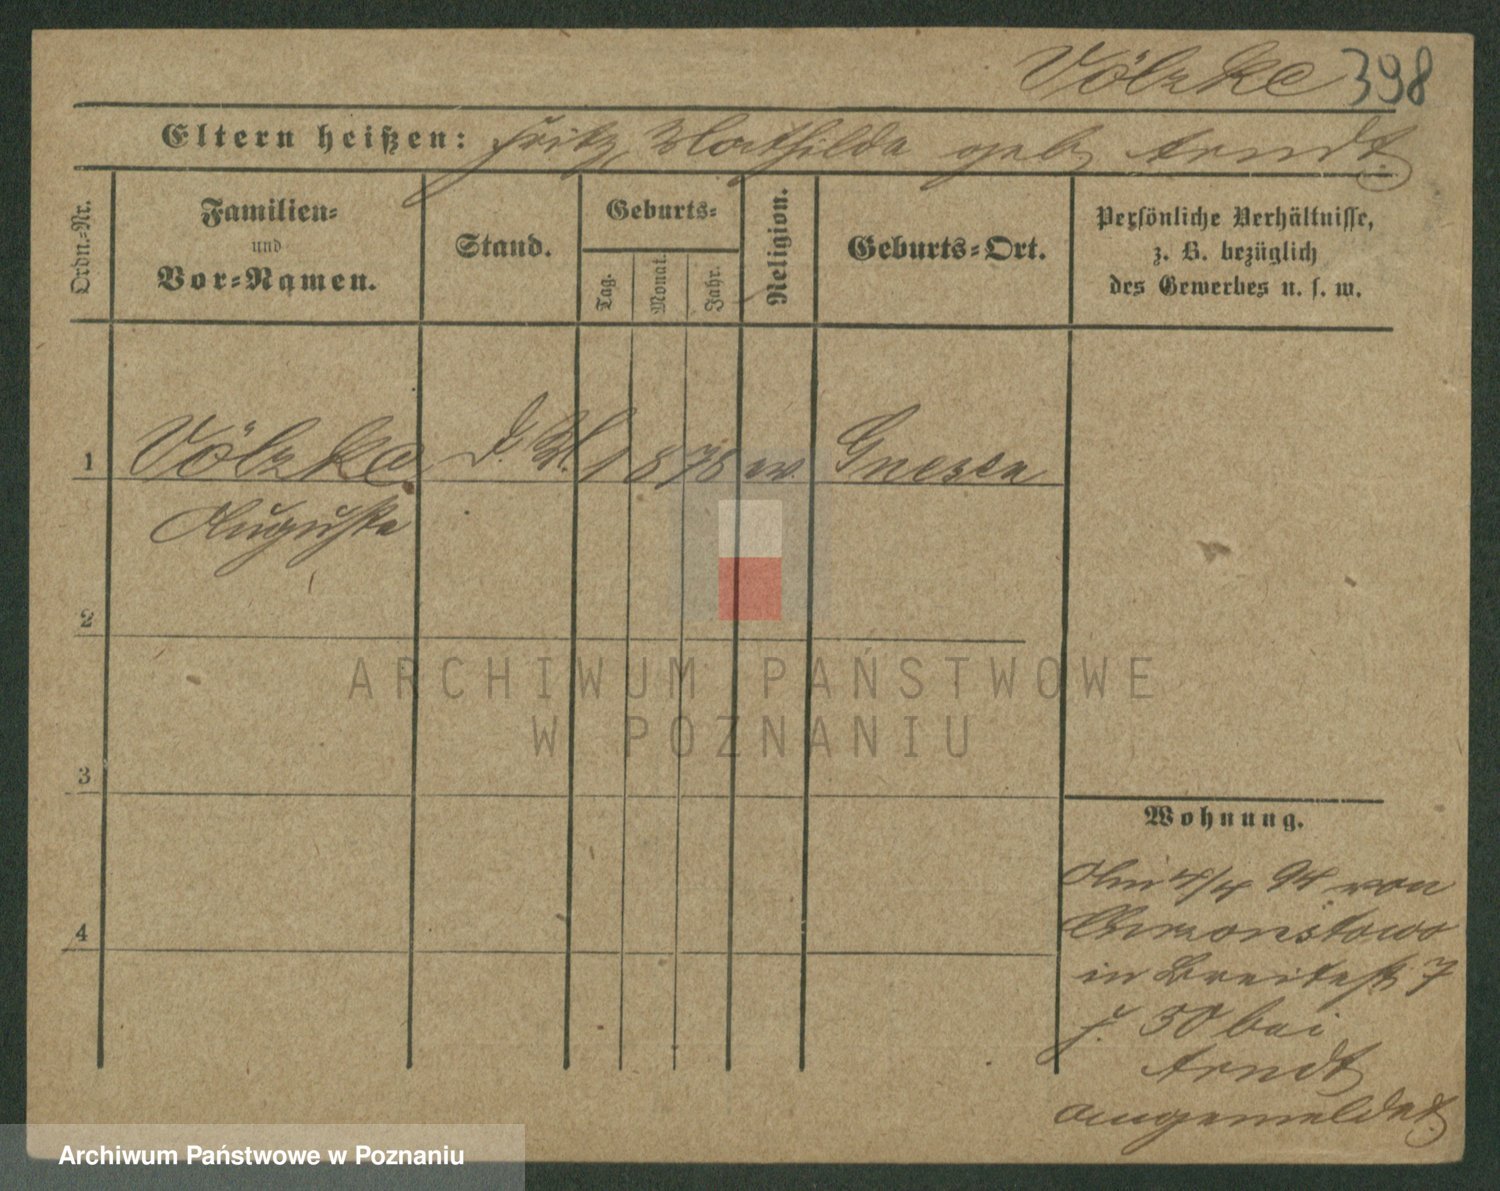 Völzke 398
Eltern heißen: Fritz, Mathilda geb. Arndt
Ordn.-Nr.
Familien-
und
Vor-Namen.
Stand.
Geburts-
Tag.
Monat.
Jahr.
Religion.
Geburts-Ort.
Persönliche Verhältnisse,
z. B. bezüglich
des Gewerbes u. s. w.
1 Völzke 1 5 78 ev. Gnesen
Auguste
2
3
4
ARCHIWUM PAŃSTWOWE
W POZNANIU
Wohnung.
Am 4/4 94 von
in Breitestr 7
z. 50 bei
Arndt
angemeldet.
Archiwum Państwowe w Poznaniu